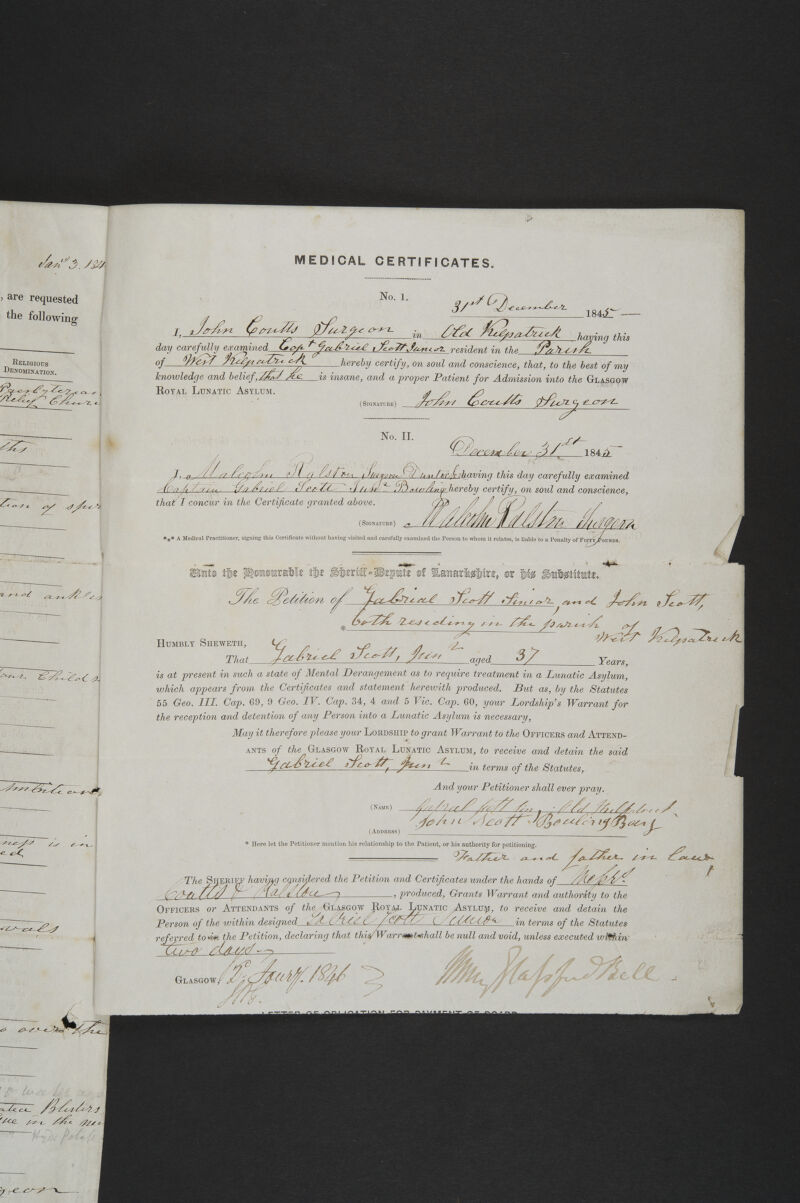 Jany 3. 184
, are requested
the following
Religious
Denomination.
Presbyterian
Relief Church
ths
tion of
and ankles
Four Children
Institution
ness is in
ed
o over the
Blisters
in the
geon
MEDICAL CERTIFICATES.
No. 1.
31st December 1845
I, John Coutts Surgeon in Old Kilpatrick having this
day carefully examined Capt Gabriel Scott Junior resident in the Parish
of West Kilpatrick hereby certify, on soul and conscience, that, to the best of my
knowledge and belief, that he is insane, and a proper Patient for Admission into the Glasgow
Royal Lunatic Asylum.
(Signature) John Coutts Surgeon
No. II.
December 31st 1845
I, Malcolm Ralston Surgeon having this day carefully examined
Captain Gabriel Scott Junr Bowling hereby certify, on soul and conscience,
that I concur in the Certificate granted above.
(Signature) Malcolm Ralston Surgeon
*** A Medical Practitioner, signing this Certificate without having visited and carefully examined the Person to whom it relates, is liable to a Penalty of Fifty Pounds.
Unto the Honourable the Sheriff-Depute of Lanarkshire, or his Substitute.
The Petition of Gabriel Scott Senior, and John Scott,
* both residing in the parish of
West Kilpatrick
Humbly Sheweth,
That Gabriel Scott, Junr aged 37 Years,
is at present in such a state of Mental Derangement as to require treatment in a Lunatic Asylum,
which appears from the Certificates and statement herewith produced. But as, by the Statutes
55 Geo. III. Cap. 69, 9 Geo. IV. Cap. 34, 4 and 5 Vic. Cap. 60, your Lordship's Warrant for
the reception and detention of any Person into a Lunatic Asylum is necessary,
May it therefore please your Lordship to grant Warrant to the Officers and Attend-
ants of the Glasgow Royal Lunatic Asylum, to receive and detain the said
Gabriel Scott, Junr in terms of the Statutes,
And your Petitioner shall ever pray.
(Name) Gabriel Scott Senr Old Kilpatrick
John Scott Bowling Bay
(Address)
* Here let the Petitioner mention his relationship to the Patient, or his authority for petitioning.
Father and father in law
The Sheriff having considered the Petition and Certificates under the hands of Messrs
Coutts & Ralston, produced, Grants Warrant and authority to the
Officers or Attendants of the Glasgow Royal Lunatic Asylum, to receive and detain the
Person of the within designed Gabriel Scott Junior in terms of the Statutes
referred to in the Petition, declaring that this Warrant shall be null and void, unless executed within
two days.
Glasgow, 2d Jany. 1846
LETTER OF OBLIGATION FOR PAYMENT OF BOARD